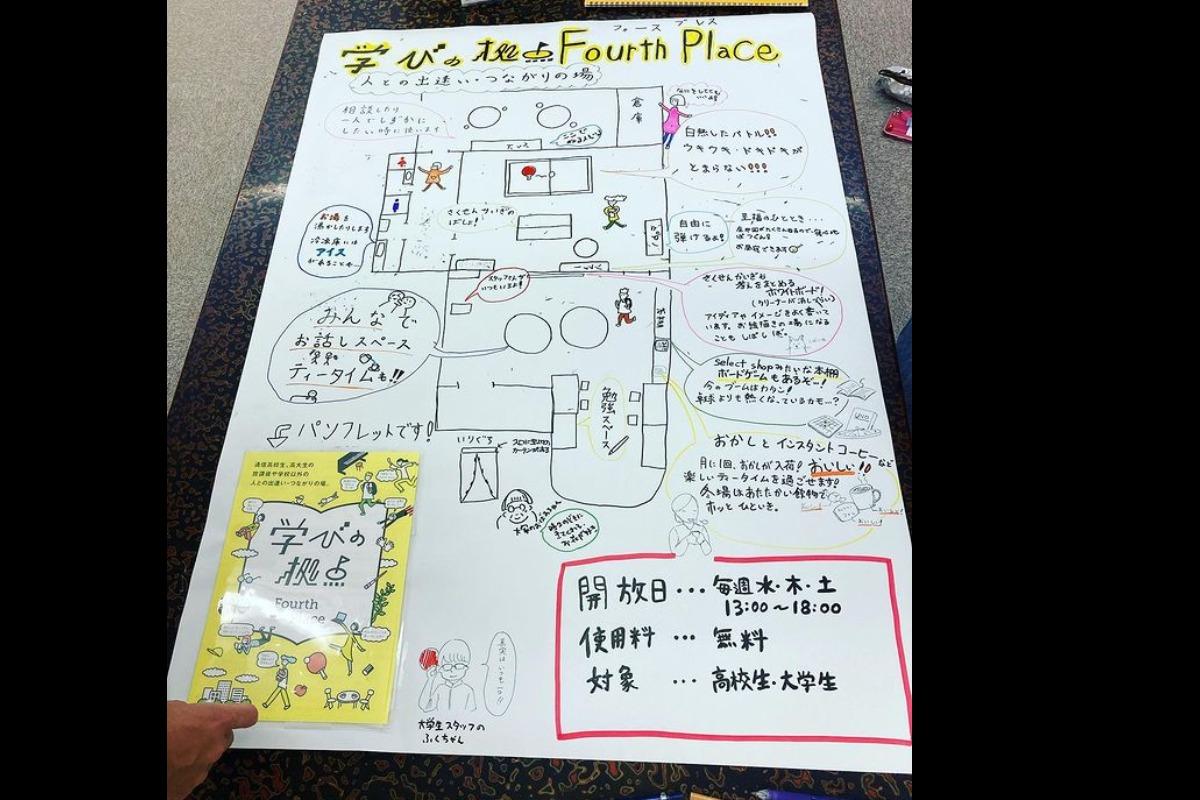 フォース プレス
学びの拠点 Fourth Place
人との出逢い・つながりの場
相談したり
一人でしずかに
したい時に使います
倉庫
白熱したバトル!!
ウキウキ・ドキドキが
とまらない!!!
お湯を
沸かしたりします
冷凍庫には
アイス
があることも
さくせんかいぎの
ばしょ!
自由に
弾けるよ!
至福のひととき・・・
スタッフさんが
いつもいるよ!
さくせんかいぎや
考えをまとめる
ホワイトボード!
アイディアやイメージをよく書いて
います。お絵描きの場になる
こともしばしば。
みんなで
お話しスペース
ティータイムも!!
select shopみたいな本棚
ボードゲームもあるぞー!
今のブームはカタン!
卓球よりも熱くなっているかも…?
勉強スペース
パンフレットです!
いりぐち
おかしとインスタントコーヒーなど
月に1回、おかしが入荷! おいしい!!
楽しいティータイムを過ごせます!
冬場はあたたかい飲物で
ホッとひといき。
通信高校生、高大生の
放課後や学校以外の
人との出逢い・つながりの場。
学びの
拠点
Fourth
開放日…毎週水・木・土
13:00〜18:00
使用料…無料
対象…高校生・大学生
真実はいつも一つ!!
大学生スタッフの
ふくちゃん